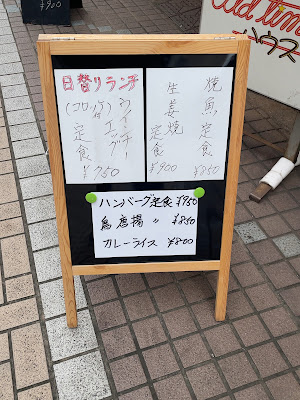 Old time
ハウス
日替りランチ
ウインナーエッグ
(コロッケ)
定食
¥750
焼魚定食
¥850
生姜焼
定食
¥900
ハンバーグ定食 ¥950
鳥唐揚 〃 ¥850
カレーライス ¥800